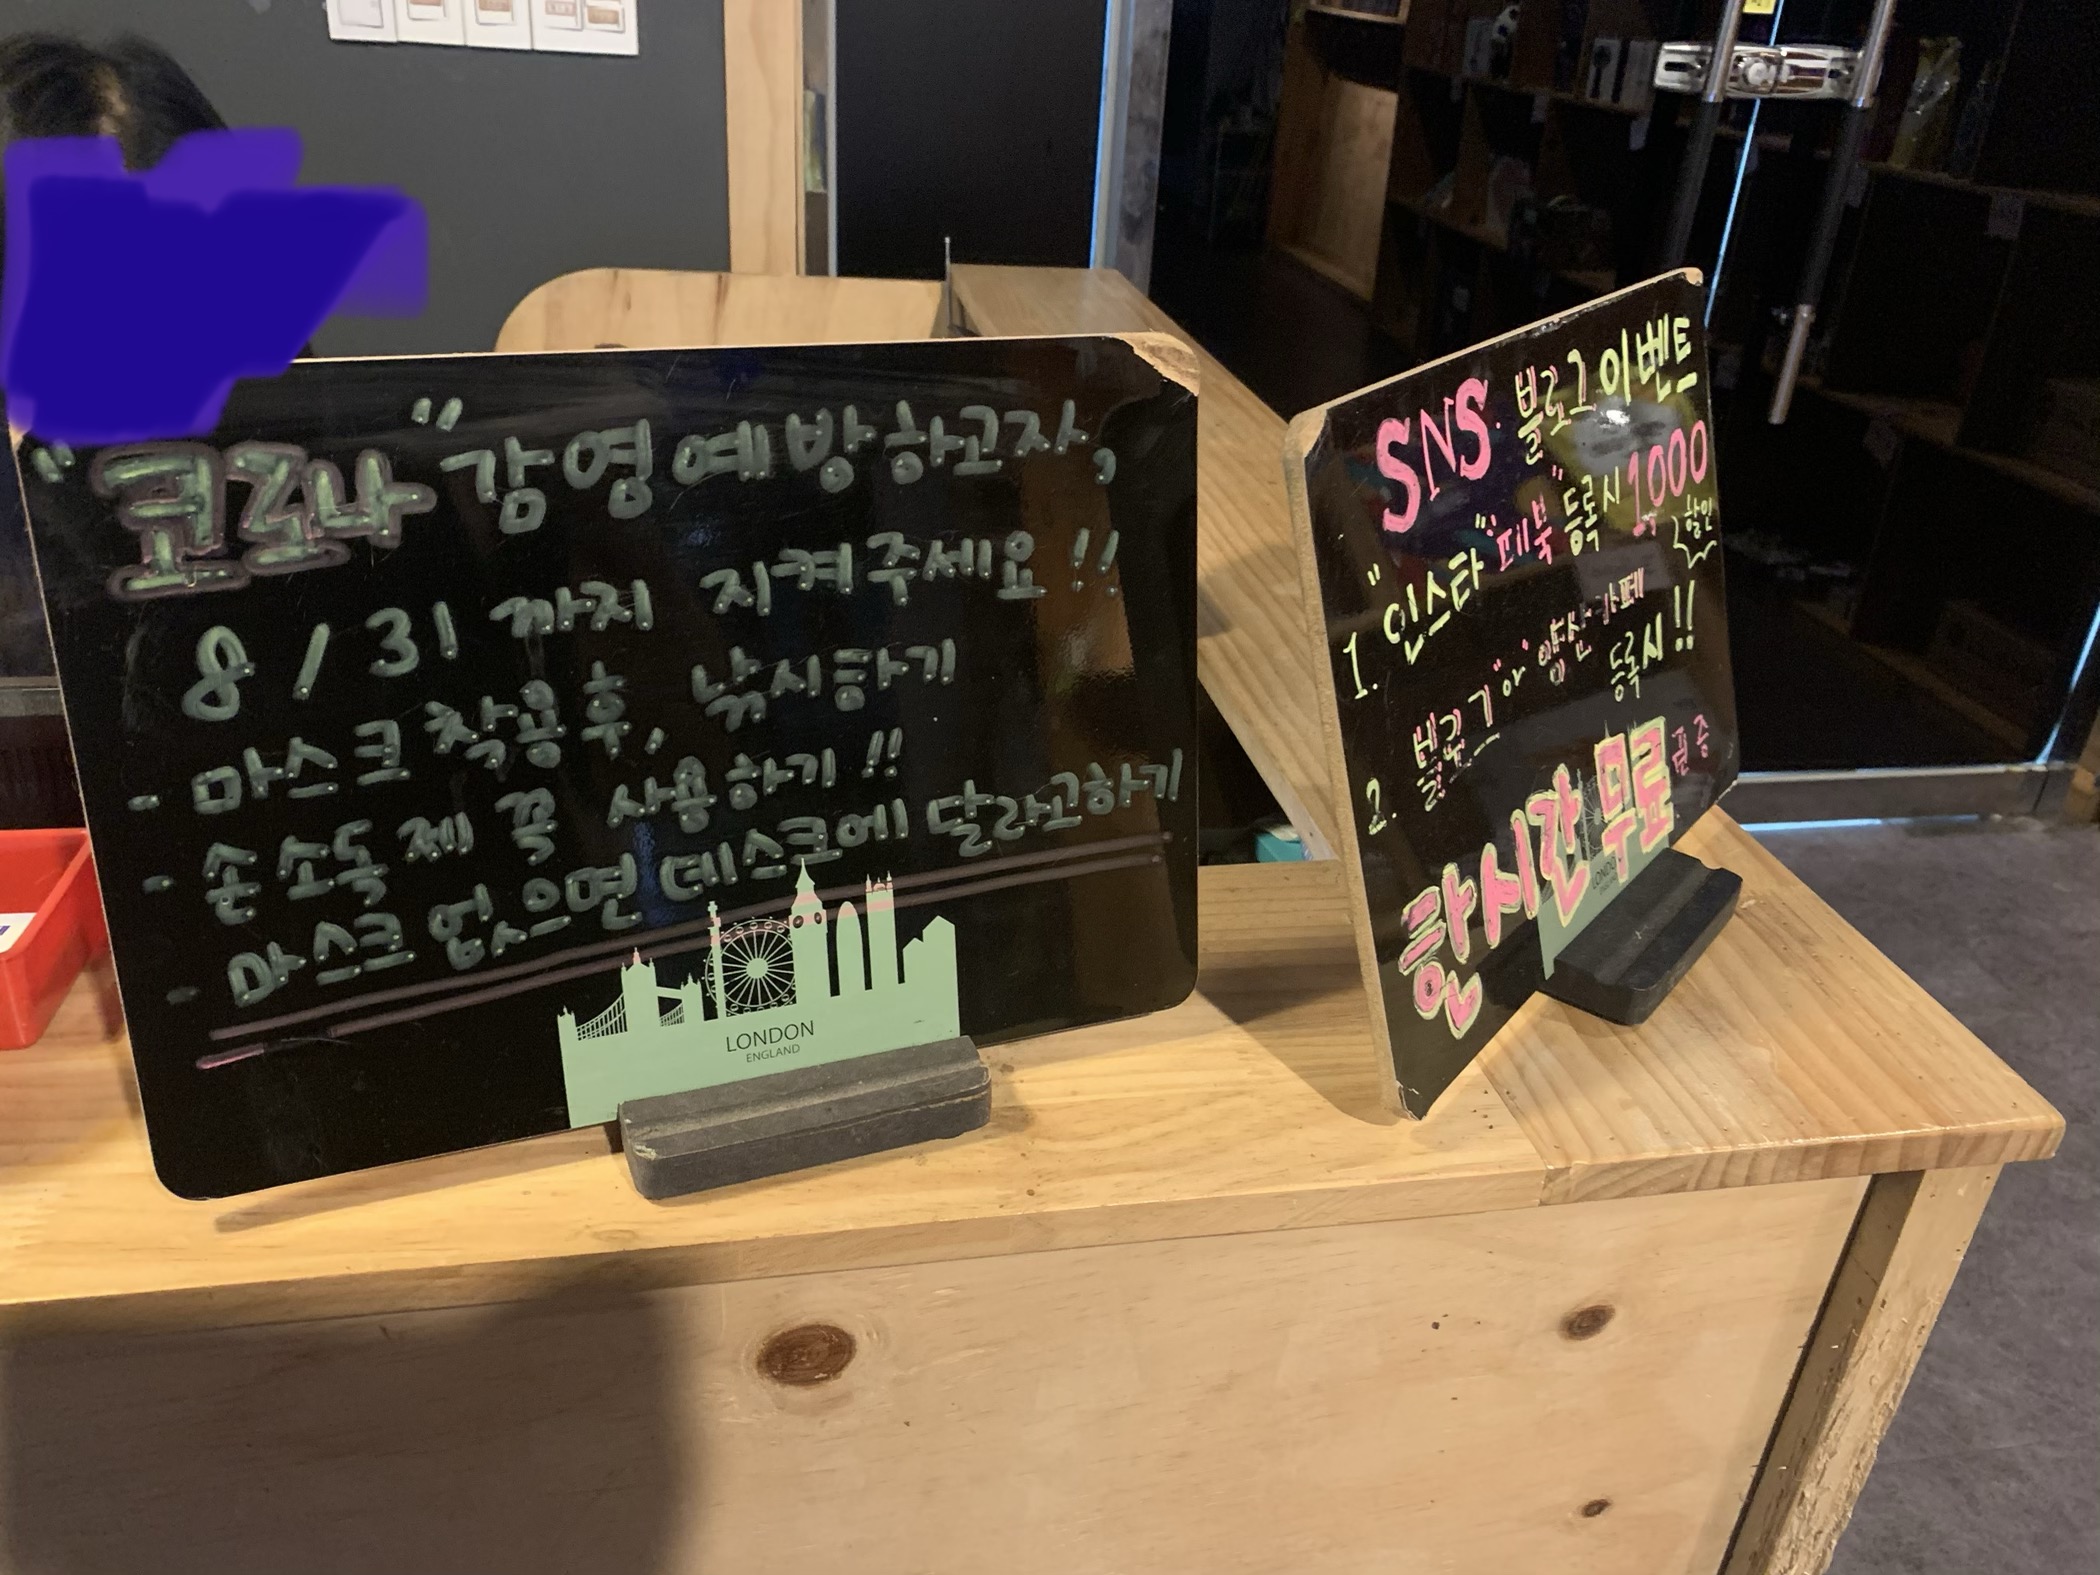 "코로나" 감영예방하고자,
8/31 까지 지켜주세요!!
- 마스크 착용후, 낚시하기
- 손소독제 꼭 사용하기!!
- 마스크 없으면 데스크에 달라고하기
LONDON
ENGLAND
SNS 블로그 이벤트
1. "인스타" "페북" 등록시 1000
할인
2. 블로그
등록시!!
한시간 무료
LONDON
ENGLAND